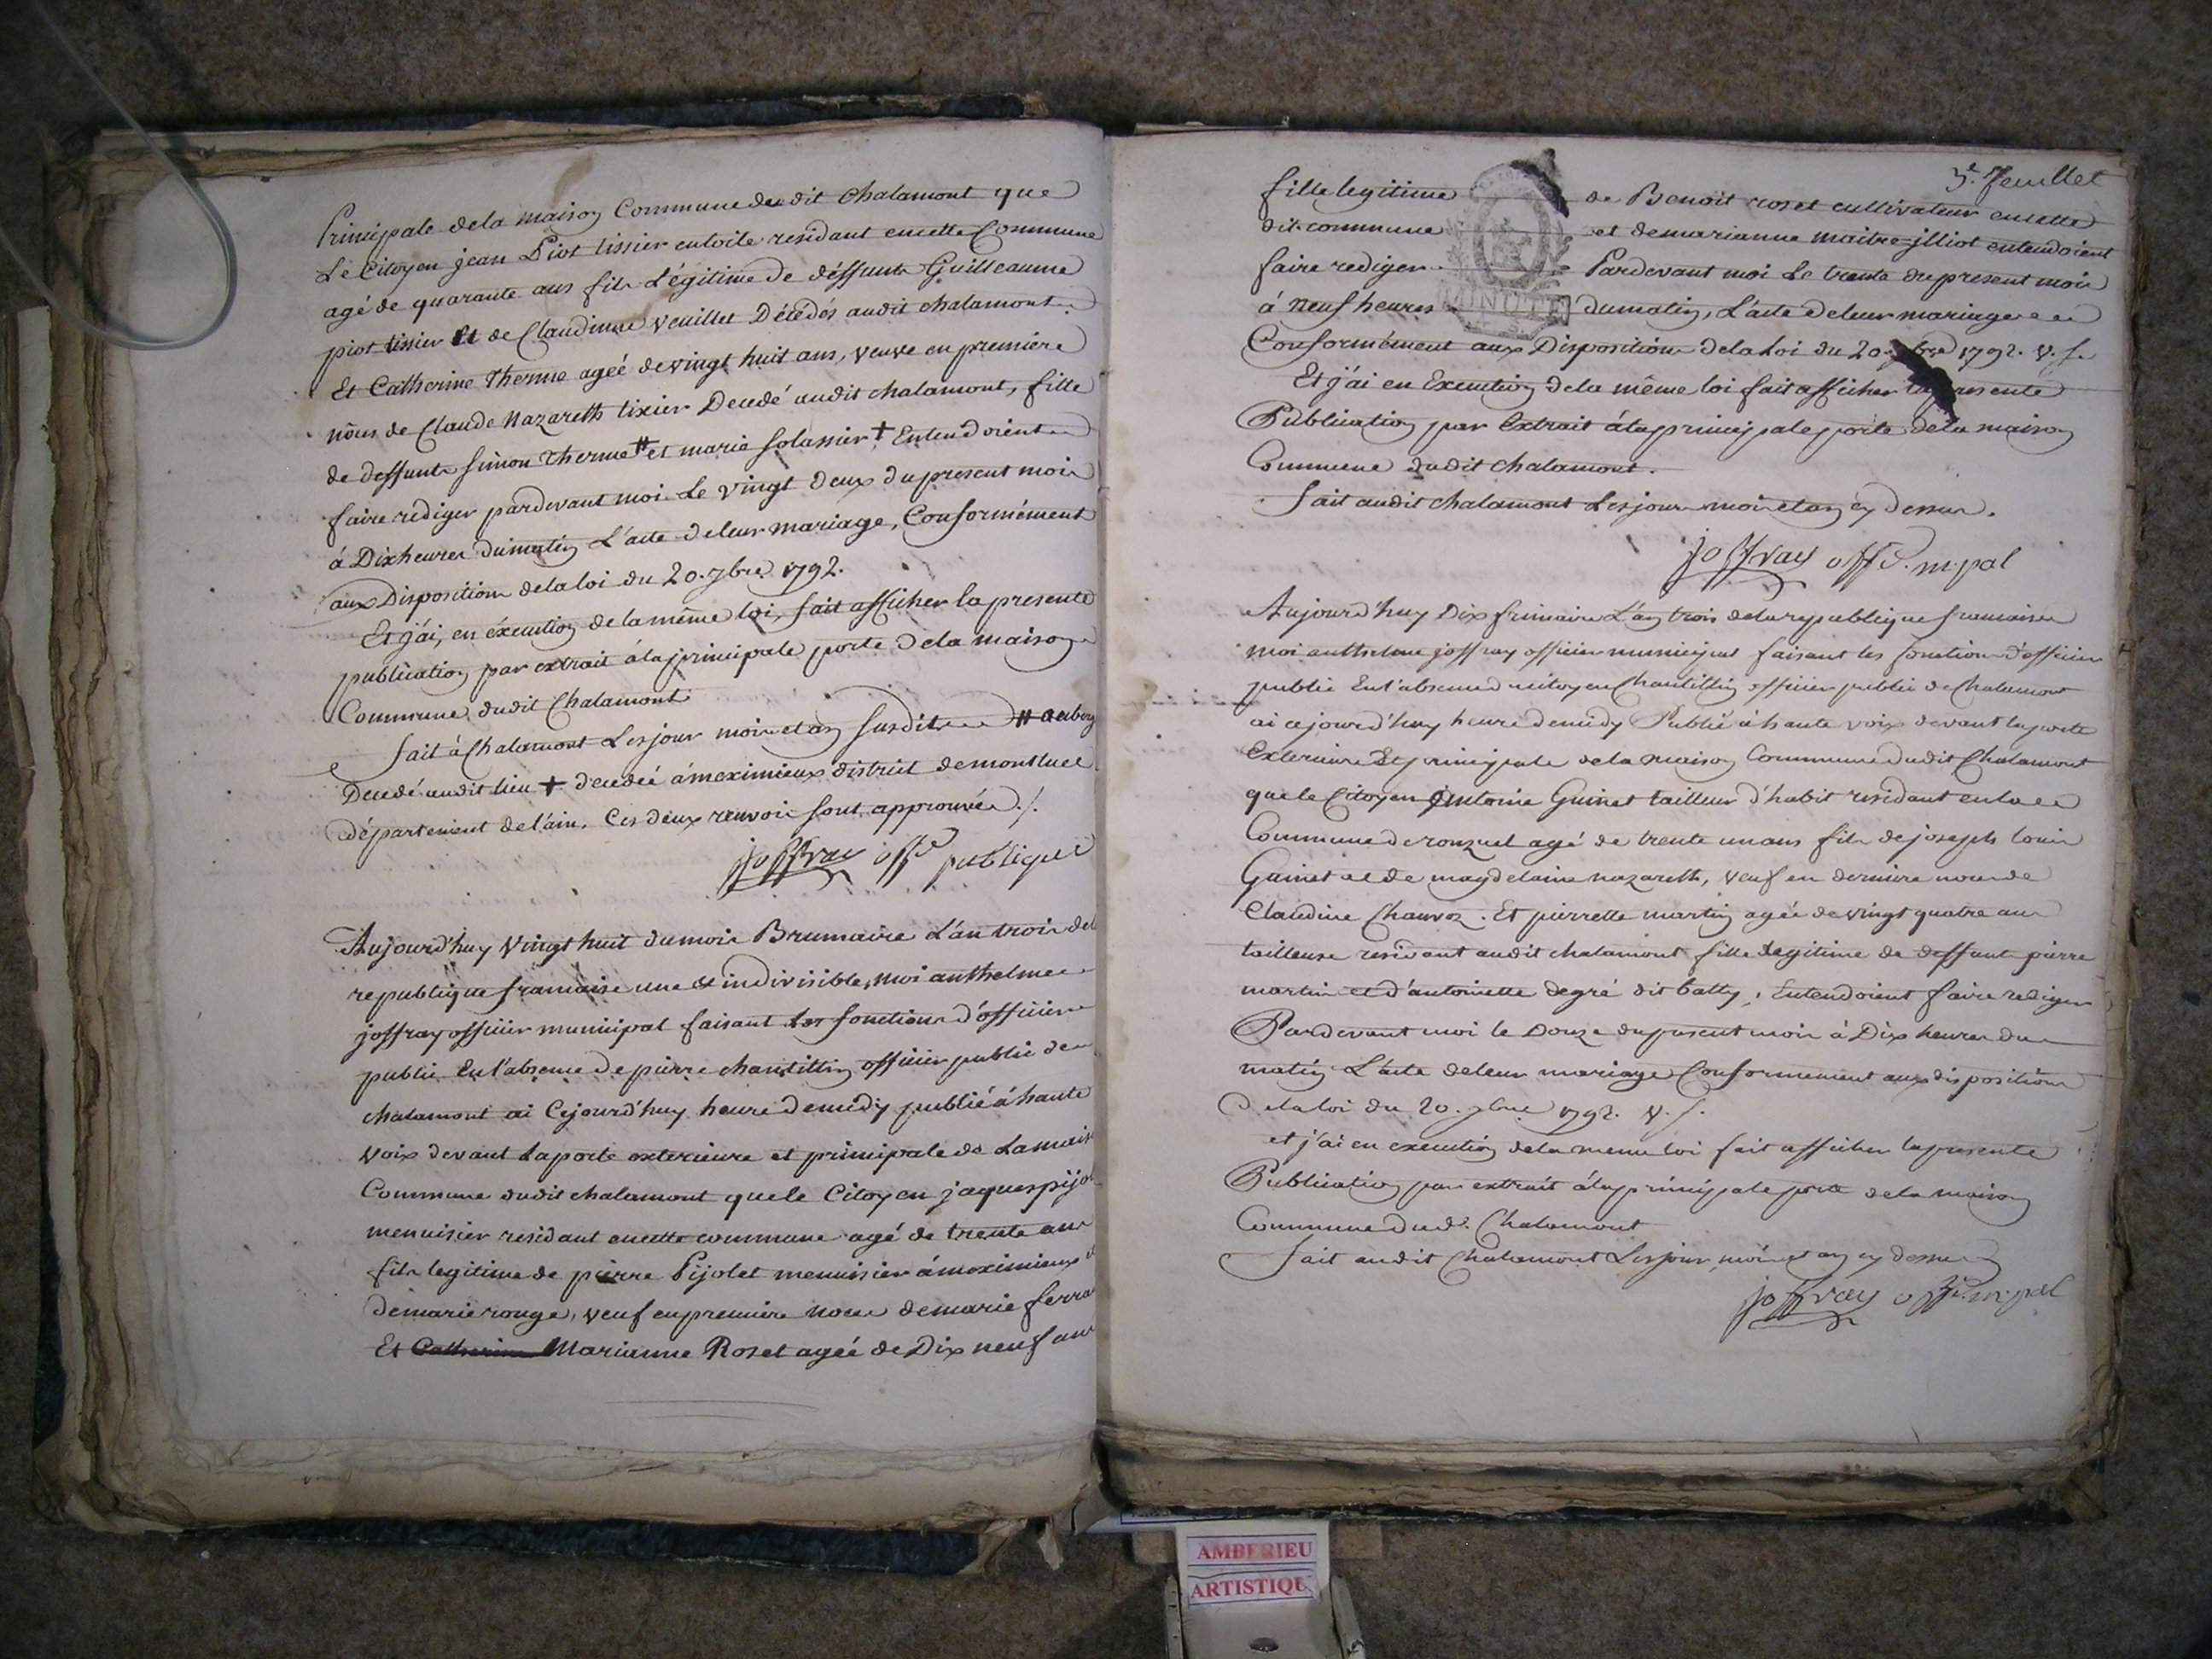 Principale dela maison Commune dudit chalamont que
Le Citoyen jean Piot tissier entoile residant encette Commune
agé de quarante ans fils Légitime de déffunts Guilleaume
piot tissier et de Claudinne veuillet Décédés audit chalamont.
Et Catherine Therme ageé devingt huit ans, veuve en premiere
nôus de Claude Nazareth tixier Decedé audit chalamont, fille
de deffunts simon therme # et marie solassier + Entendoient
faire rediger pardevant moi Le vingt deux dupresent mois
á Dix heures dumatin L'acte deleur mariage, Conformément
aux Dispositions dela loi du 20. 7bre. 1792.
Et j'ai, en éxecution de la même loi, fait afficher la presente
publication par extrait álaprincipale porte dela maison
Commune dudit Chalamont
fait á Chalamont Les jour mois et an susdits # auberg
Decedé audit lieu + decedeé ámeximieux district demontluel
département de l'ain. Ces deux renvois sont approuvés ./.
joffray offer publique
Aujourd'huy Vingt huit dumois Brumaire L'an trois dela
republique francaise une et indivisible, moi anthelme
joffray officier municipal faisant les fonctions d'officier
public En l'absence de pierre chantillin officier public de
chalamont ai Cejourd'huy heure demidy publié á haute
voix devant Laporte exterieure et principale de Lamaison
Commune dudit chalamont que le Citoyen jaques pijol
menuisier residant encette commune agé de trente ans
fils legitime de pierre Pijolet menuisier ámeximieux et
demarie rouge, veuf enpremiere noces demarie ferra
Et Catherine Marianne Roset ageé de Dix neuf ans
5e. feuillet
fille legitime de Benoit roset cultivateur encette
dit commune et demarianne maitre jlliot entendoient
faire rediger Pardevant moi Le trente dupresent mois
á neuf heures dumatin, L'acte deleur mariage
MINUTE
Conformément aux Dispositions dela Loi du 20. 7bre 1792. v. s.
Et j'ai en Execution dela même loi fait afficher la presente
Publication par Extrait álaprincipale porte dela maison
Commune dudit chalamont.
fait audit chalamont Les jour mois et an cy dessus.
joffray offe. m.pal
Aujourd'huy Dix frimaire L'an trois dela republique francaise
moi anthelme joffray officier municipal faisant les fonctions d'officier
public En l'absence du citoyen Chantillin officier public de Chalamont
ai cejourd'huy heure demidy Publié á haute voix devant laporte
Exterieure Et principale dela maison Commune dudit Chalamont
que le Citoyen Antoine Guinet tailleur d'habit residant en la
Commune de ronzuel agé de trente un ans fils de joseph louis
Guinet et de magdelaine nazareth, veuf en derniere noces de
Claudine Chauvoz. Et pierrette martin agée de vingt quatre ans
tailleuse residant audit chalamont fille legitime de deffunts pierre
martin et d'antoinette degré dit batty, Entendoient faire rediger
Pardevant moi le Douze dupresent mois á Dix heures du
matin L'acte deleur mariage Conformement aux dispositions
dela loi du 20. 7bre 1792. v. s.
et j'ai en execution dela meme loi fait afficher lapresente
Publication par extrait álaprincipale porte dela maison
Commune dud. Chalamont
fait audit Chalamont Les jour, mois et an cy dessus
joffray offe. m.pal
AMBERIEU
ARTISTIQU